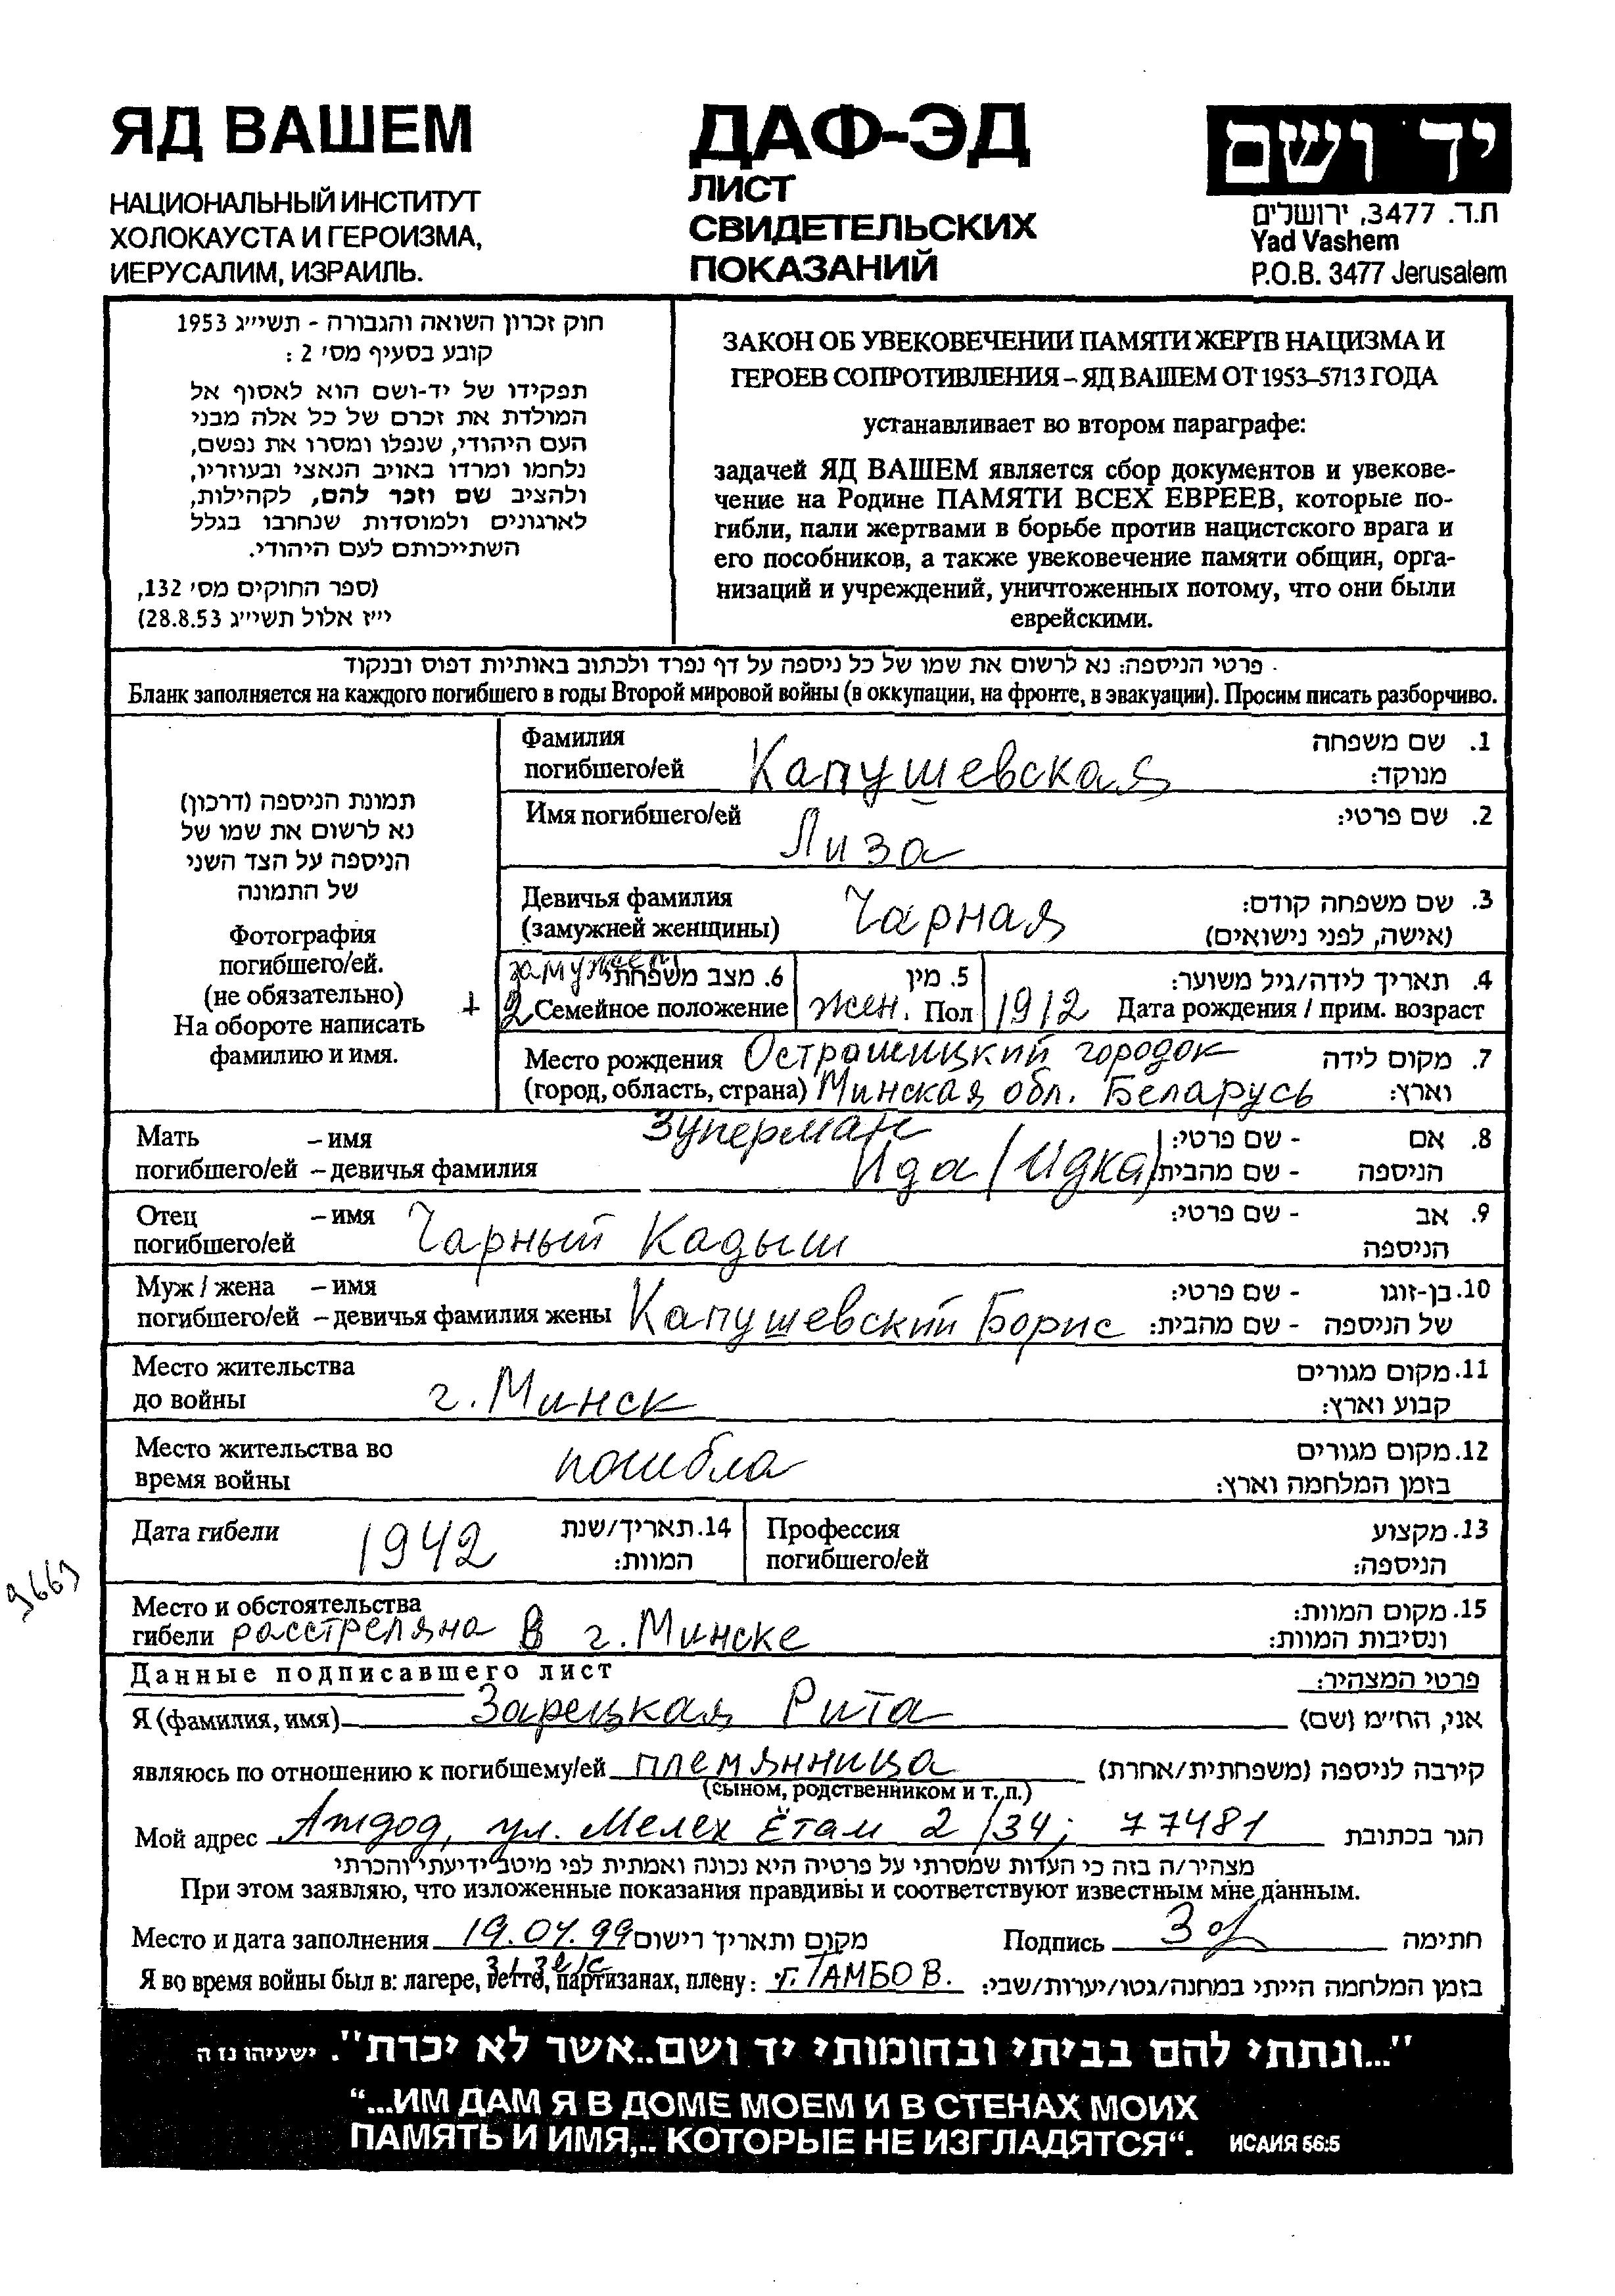 ЯД ВАШЕМ
НАЦИОНАЛЬНЫЙ ИНСТИТУТ
ХОЛОКАУСТА И ГЕРОИЗМА,
ИЕРУСАЛИМ, ИЗРАИЛЬ.
ДАФ-ЭД
ЛИСТ
СВИДЕТЕЛЬСКИХ
ПОКАЗАНИЙ
יד ושם
ת.ד. 3477, ירושלים
Yad Vashem
P.O.B. 3477 Jerusalem
חוק זכרון השואה והגבורה - תשי״ג 1953
קובע בסעיף מס׳ 2 :
תפקידו של יד-ושם הוא לאסוף אל
המולדת את זכרם של כל אלה מבני
העם היהודי, שנפלו ומסרו את נפשם,
נלחמו ומרדו באויב הנאצי ובעוזריו,
ולהציב שם וזכר להם, לקהילות,
לארגונים ולמוסדות שנחרבו בגלל
השתייכותם לעם היהודי.
(ספר החוקים מס׳ 132,
י״ז אלול תשי״ג 28.8.53)
ЗАКОН ОБ УВЕКОВЕЧЕНИИ ПАМЯТИ ЖЕРТВ НАЦИЗМА И
ГЕРОЕВ СОПРОТИВЛЕНИЯ – ЯД ВАШЕМ ОТ 1953–5713 ГОДА
устанавливает во втором параграфе:
задачей ЯД ВАШЕМ является сбор документов и увекове-
чение на Родине ПАМЯТИ ВСЕХ ЕВРЕЕВ, которые по-
гибли, пали жертвами в борьбе против нацистского врага и
его пособников, а также увековечение памяти общин, орга-
низаций и учреждений, уничтоженных потому, что они были
еврейскими.
פרטי הניספה: נא לרשום את שמו של כל ניספה על דף נפרד ולכתוב באותיות דפוס ובנקוד
Бланк заполняется на каждого погибшего в годы Второй мировой войны (в оккупации, на фронте, в эвакуации). Просим писать разборчиво.
תמונת הניספה (דרכון)
נא לרשום את שמו של
הניספה על הצד השני
של התמונה
Фотография
погибшего/ей.
(не обязательно)
На обороте написать
фамилию и имя.
Фамилия
погибшего/ей Капушевская
1. שם משפחה
מנוקד:
Имя погибшего/ей Лиза
2. שם פרטי:
Девичья фамилия
(замужней женщины) Чарная
3. שם משפחה קודם:
(אישה, לפני נישואים)
замужем
6. מצב משפחתי
+ 2 Семейное положение
5. מין
жен. Пол
4. תאריך לידה/גיל משוער:
1912 Дата рождения / прим. возраст
Место рождения Острошицкий городок
(город, область, страна) Минская обл. Беларусь
7. מקום לידה
וארץ:
Мать – имя Зуперман
погибшего/ей – девичья фамилия Ида (Идка)
8. אם - שם פרטי:
הניספה - שם מהבית:
Отец – имя
погибшего/ей Чарный Кадыш
9. אב - שם פרטי:
הניספה
Муж / жена – имя
погибшего/ей – девичья фамилия жены Капушевский Борис
10. בן-זוגו - שם פרטי:
של הניספה - שם מהבית:
Место жительства
до войны г. Минск
11. מקום מגורים
קבוע וארץ:
Место жительства во
время войны погибла
12. מקום מגורים
בזמן המלחמה וארץ:
Дата гибели 1942
14. תאריך/שנת
המוות:
Профессия
погибшего/ей
13. מקצוע
הניספה:
Место и обстоятельства
гибели расстреляна в г. Минске
15. מקום המוות:
ונסיבות המוות:
Данные подписавшего лист
פרטי המצהיר:
Я (фамилия, имя) Зарецкая Рита אני, הח״מ (שם)
являюсь по отношению к погибшему/ей племянница קירבה לניספה (משפחתית/אחרת)
(сыном, родственником и т. п.)
Мой адрес Ашдод, ул. Мелех Ётам 2/34; 77481 הגר בכתובת
מצהיר/ה בזה כי העדות שמסרתי על פרטיה היא נכונה ואמתית לפי מיטב ידיעתי והכרתי
При этом заявляю, что изложенные показания правдивы и соответствуют известным мне данным.
Место и дата заполнения 19.04.99 מקום ותאריך רישום Подпись חתימה
Я во время войны был в: лагере, гетто, партизанах, плену: г. ТАМБОВ. בזמן המלחמה הייתי במחנה/גטו/יערות/שבי:
"...ונתתי להם בביתי ובחומותי יד ושם..אשר לא יכרת". ישעיהו נז ה
“...ИМ ДАМ Я В ДОМЕ МОЕМ И В СТЕНАХ МОИХ
ПАМЯТЬ И ИМЯ,.. КОТОРЫЕ НЕ ИЗГЛАДЯТСЯ“. ИСАИЯ 56:5